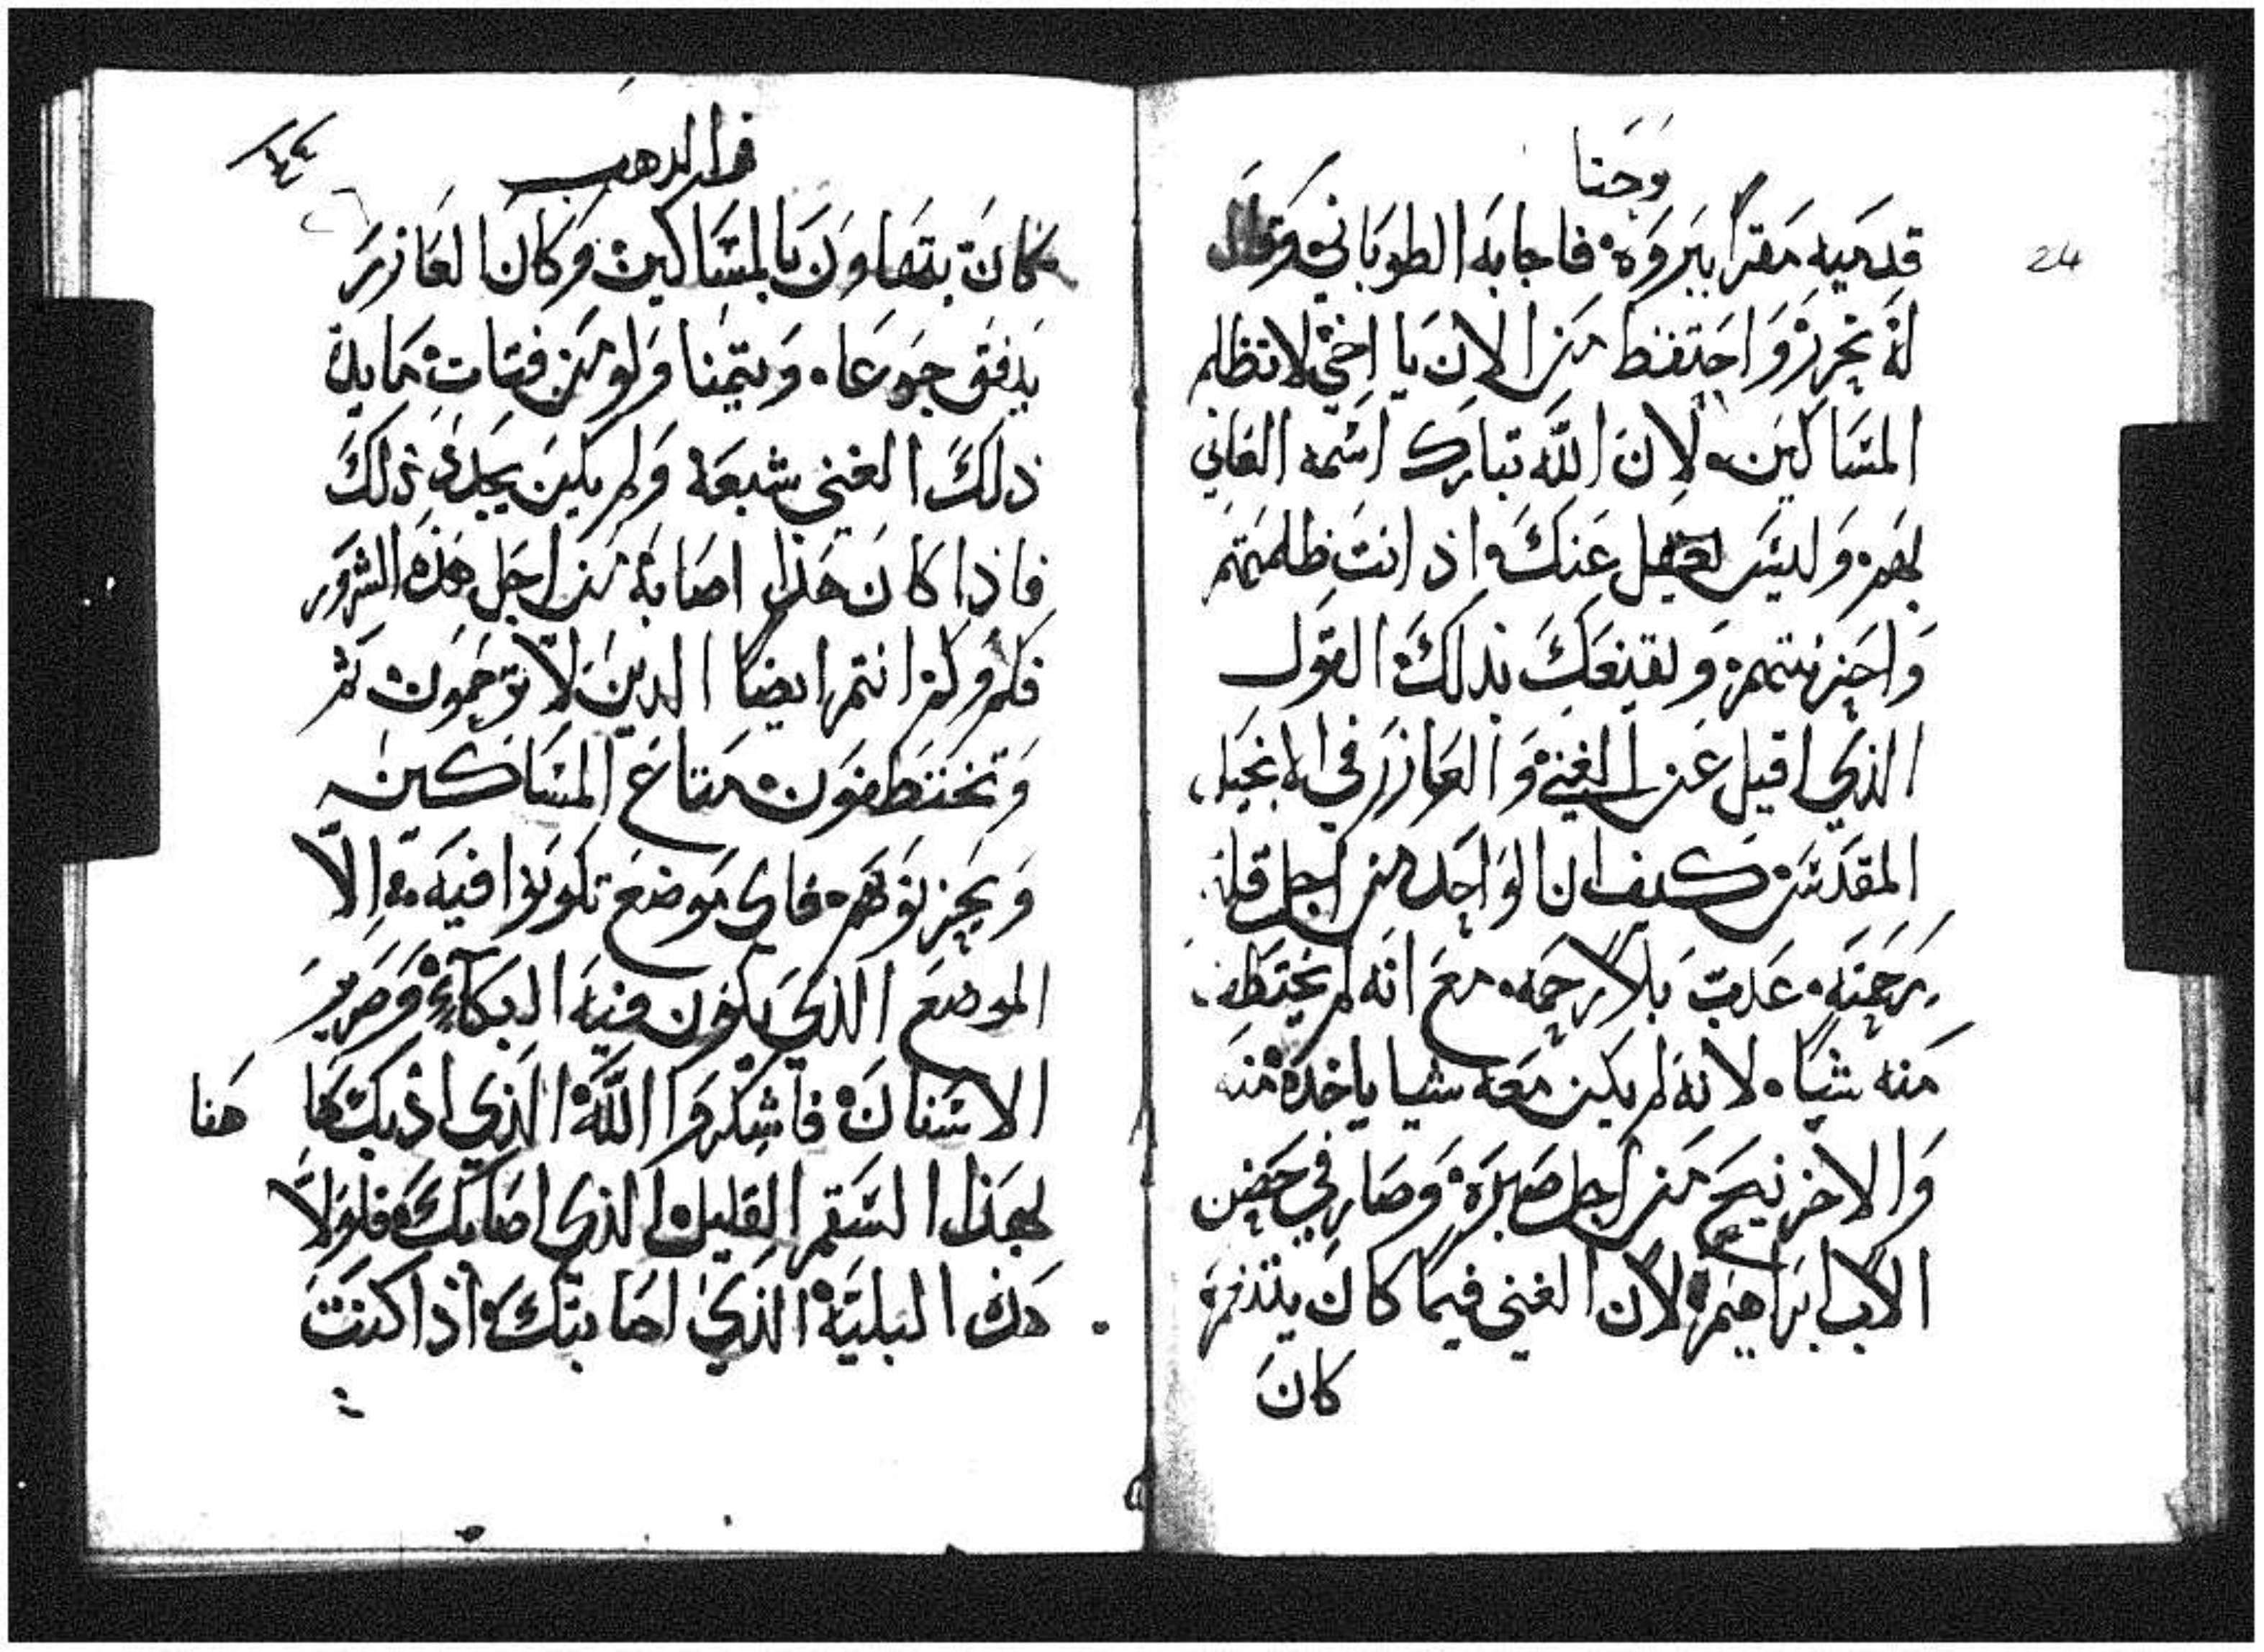 وحنا
24
قدميه مقرا ببروه فاجابه الطوباني وقال
له تحرز واحتفظ من الان يا اخي لا تظلم
المساكين ولان الله تبارك اسمه الغاني
لهم وليس يغفل عنك اذ انت ظلمتهم
واحزنتهم ويقنعك بذلك القول
الذي اقيل عن الغني والعازر في الانجيل
المقدس كيف ان الواحد من اجل قلة
رحمته عدب بلا رحمه مع انه لم يختطف
منه شيا لانه لم يكن معه شيا ياخده منه
والاخر نيح من اجل صبره وصار في حضن
الاب ابراهيم لان الغني فيما كان يتنعم
كان
فم الدهب
كان يتهاون بالمساكين وكان العازر
يدفق جوعا ويتمنا ولو من فتات مايدة
ذلك الغني شبعة ولم يكن يجد ذلك
فاذا كان هذا اصابه من اجل هذه الشرور
فكم وكم انتم ايضا الدين لا ترحمون
وتختطفون متاع المساكين
وتحزنوهم فاى موضع تكونوا فيه الا
الموضع الذي يكون فيه البكاء وصرير
الاسنان فاشكروا الله الذي اذبك هاهنا
بهذا السقم القليل الذي اصابك فلولا
هذه البلية الذي اصابتك اذا كنت